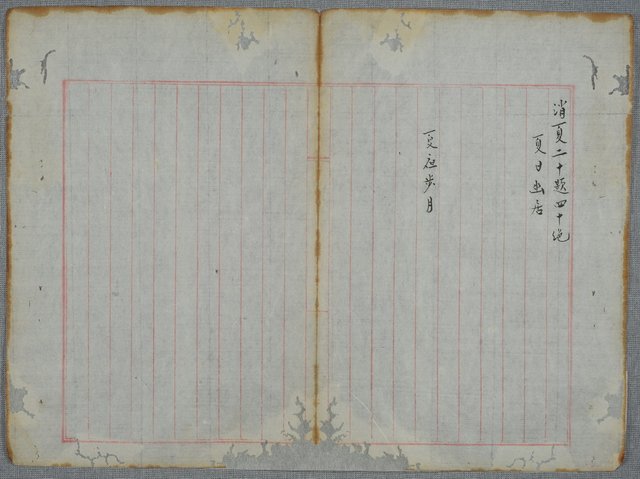 消夏二十題四十绝
夏日幽居
夏夜步月